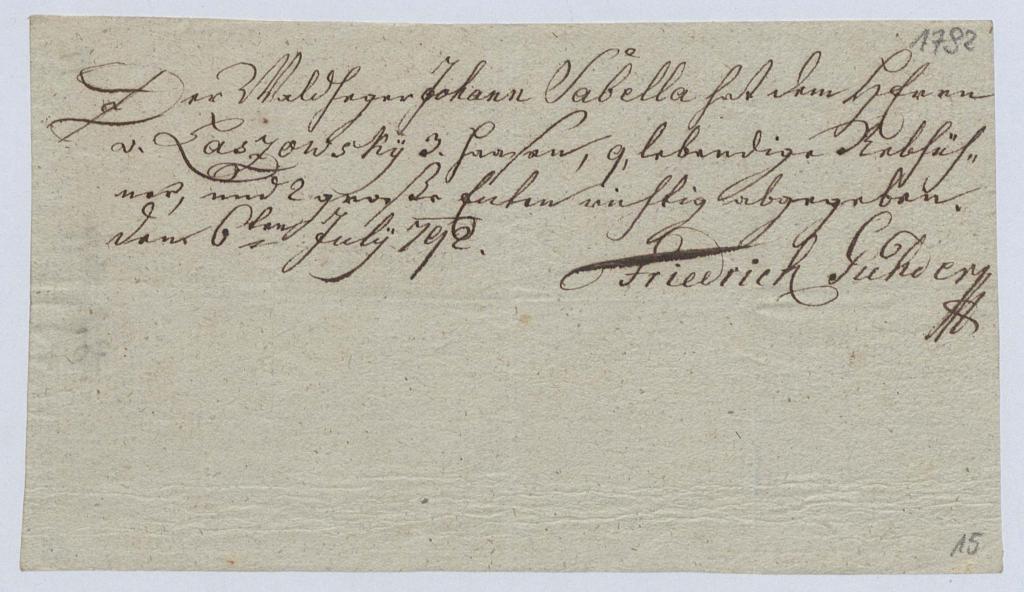 1792
Der Waldheger Johann Sabella hat dem HErrn
v. Laszowskÿ 3. Haasen, 9, lebendige Rebhüh„
ner, und 2 große Enten richtig abgegeben.
den 6ten Julÿ 792.
Friedrich
15